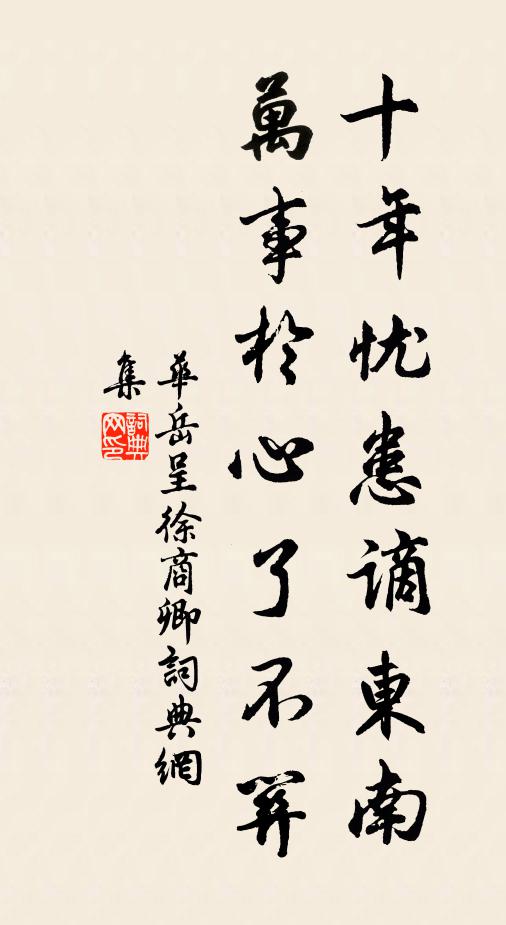 十年忧患謫東南
萬事於心了不
華岳呈徐商卿詞典網
集
詞典
网印